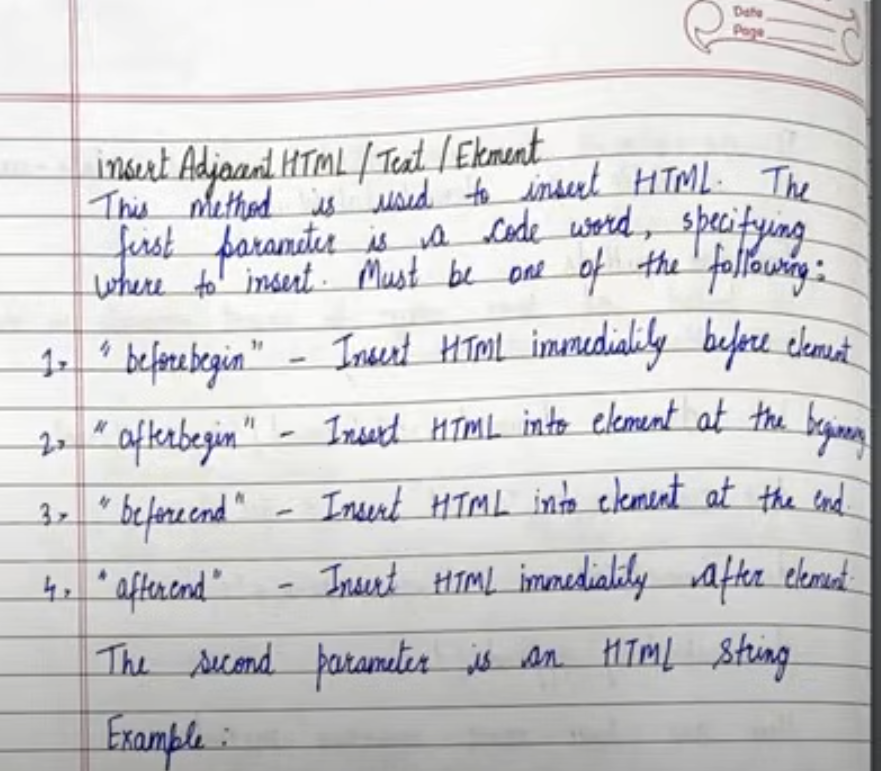 Date
Page
insert Adjacent HTML / Text / Element
This method is used to insert HTML. The
first parameter is a code word, specifying
where to insert. Must be one of the following:
1. "beforebegin" - Insert HTML immedialily before element
2. "afterbegin" - Insert HTML into element at the beginning
3. "beforeend" - Insert HTML into element at the end.
4. "afterend" - Insert HTML immedialily after element.
The second parameter is an HTML String
Example :